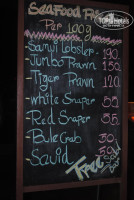 SeaFood
Per 100g
Sanyi lobster - 190
Jumbo Prawn - 150
Tiger Prawn 120
white Snaper 55
Red Snaper 55
Bule Crab 30
Squid
Free